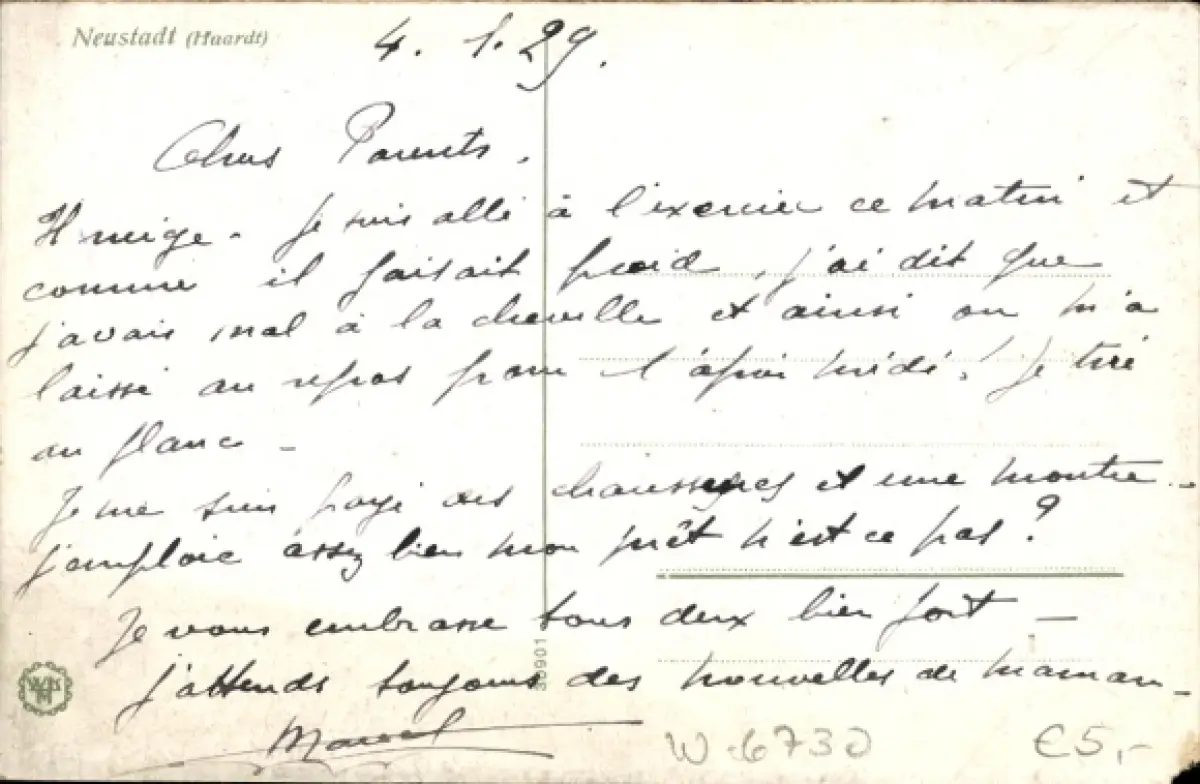 Neustadt (Haardt)
4. 1. 29.
Chers Parents,
Il neige. Je suis allé à l'exercice ce matin et
comme il faisait froid, j'ai dit que
j'avais mal à la cheville et ainsi on m'a
laissé au repos pour l'après midi! Je tire
au flanc -
Je me suis payé des chaussures et une montre -
j'emploie assez bien mon prêt n'est ce pas?
Je vous embrasse tous deux bien fort -
j'attends toujours des nouvelles de maman -
Marcel
W-6730
€5,-